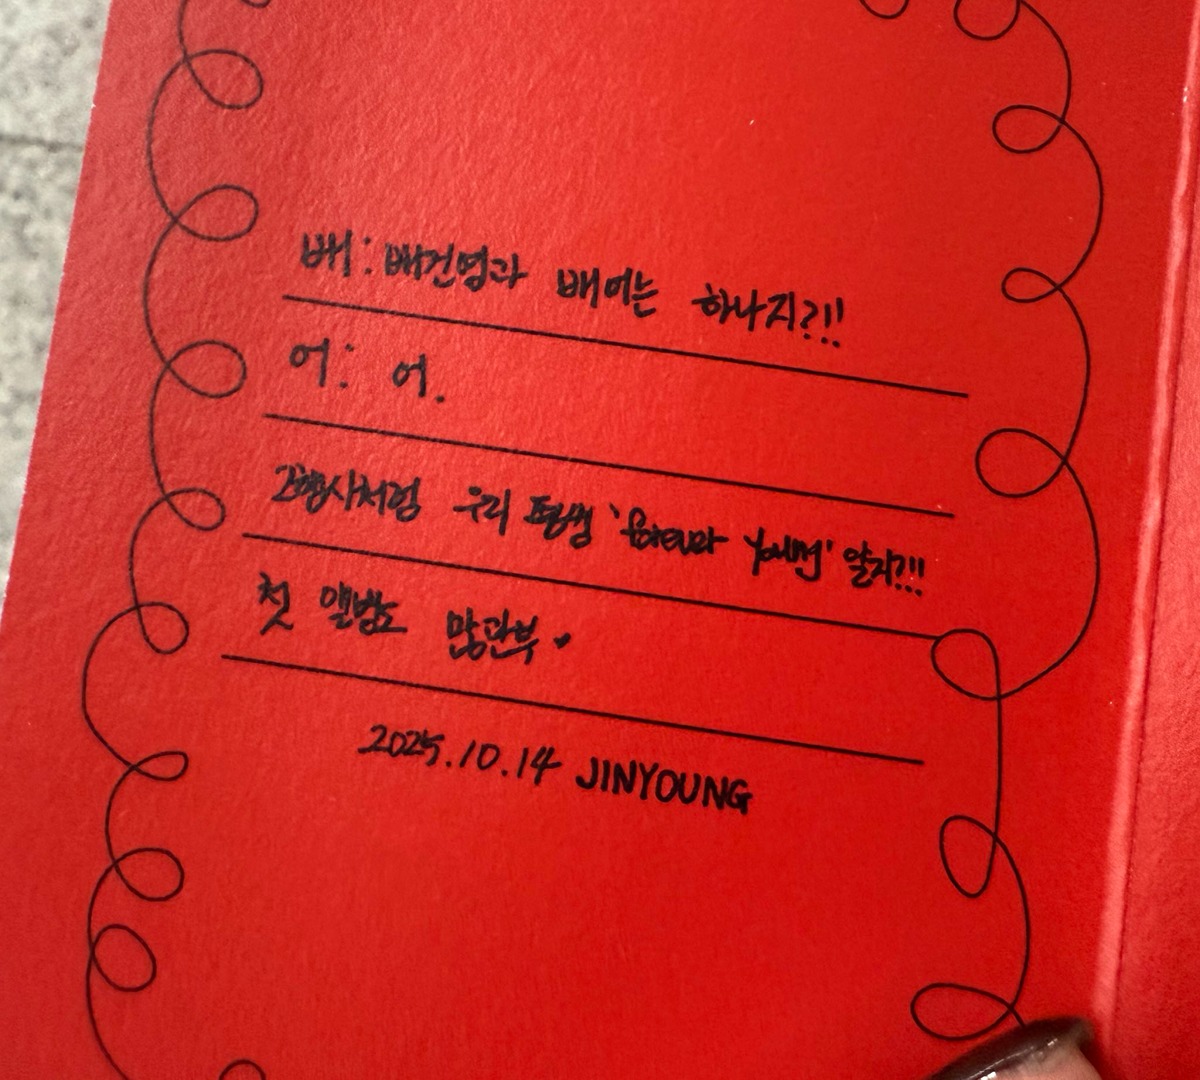 배 : 배진영과 배어는 하나지?!!
어 : 어.
2행시처럼 우리 평생 'forever young' 알지?!!
첫 앨범도 많관부♥
2025.10.14 JINYOUNG